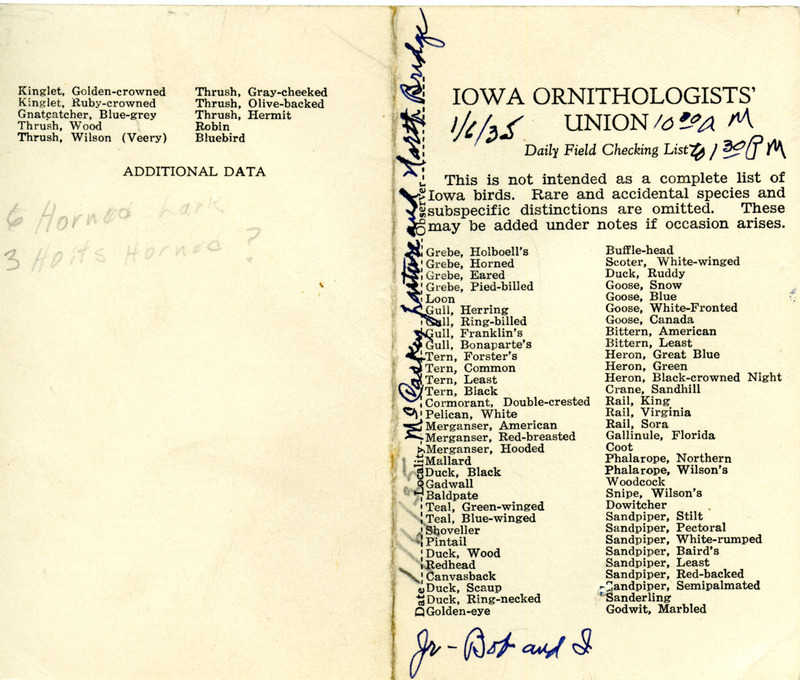 Kinglet, Golden-crowned
Kinglet, Ruby-crowned
Gnatcatcher, Blue-grey
Thrush, Wood
Thrush, Wilson (Veery)
Thrush, Gray-cheeked
Thrush, Olive-backed
Thrush, Hermit
Robin
Bluebird
ADDITIONAL DATA
6 Horned Lark
3 Hoits Horned ?
Date 1/6/35 Locality McCaskey pasture and North Bridge Observer
IOWA ORNITHOLOGISTS'
UNION 10 30 A M
1/6/35
Daily Field Checking List to 1 30 P M
This is not intended as a complete list of
Iowa birds. Rare and accidental species and
subspecific distinctions are omitted. These
may be added under notes if occasion arises.
Grebe, Holboell's
Grebe, Horned
Grebe, Eared
Grebe, Pied-billed
Loon
Gull, Herring
Gull, Ring-billed
Gull, Franklin's
Gull, Bonaparte's
Tern, Forster's
Tern, Common
Tern, Least
Tern, Black
Cormorant, Double-crested
Pelican, White
Merganser, American
Merganser, Red-breasted
Merganser, Hooded
Mallard
Duck, Black
Gadwall
Baldpate
Teal, Green-winged
Teal, Blue-winged
Shoveller
Pintail
Duck, Wood
Redhead
Canvasback
Duck, Scaup
Duck, Ring-necked
Golden-eye
Buffle-head
Scoter, White-winged
Duck, Ruddy
Goose, Snow
Goose, Blue
Goose, White-Fronted
Goose, Canada
Bittern, American
Bittern, Least
Heron, Great Blue
Heron, Green
Heron, Black-crowned Night
Crane, Sandhill
Rail, King
Rail, Virginia
Rail, Sora
Gallinule, Florida
Coot
Phalarope, Northern
Phalarope, Wilson's
Woodcock
Snipe, Wilson's
Dowitcher
Sandpiper, Stilt
Sandpiper, Pectoral
Sandpiper, White-rumped
Sandpiper, Baird's
Sandpiper, Least
Sandpiper, Red-backed
Sandpiper, Semipalmated
Sanderling
Godwit, Marbled
Jr - Bob and I